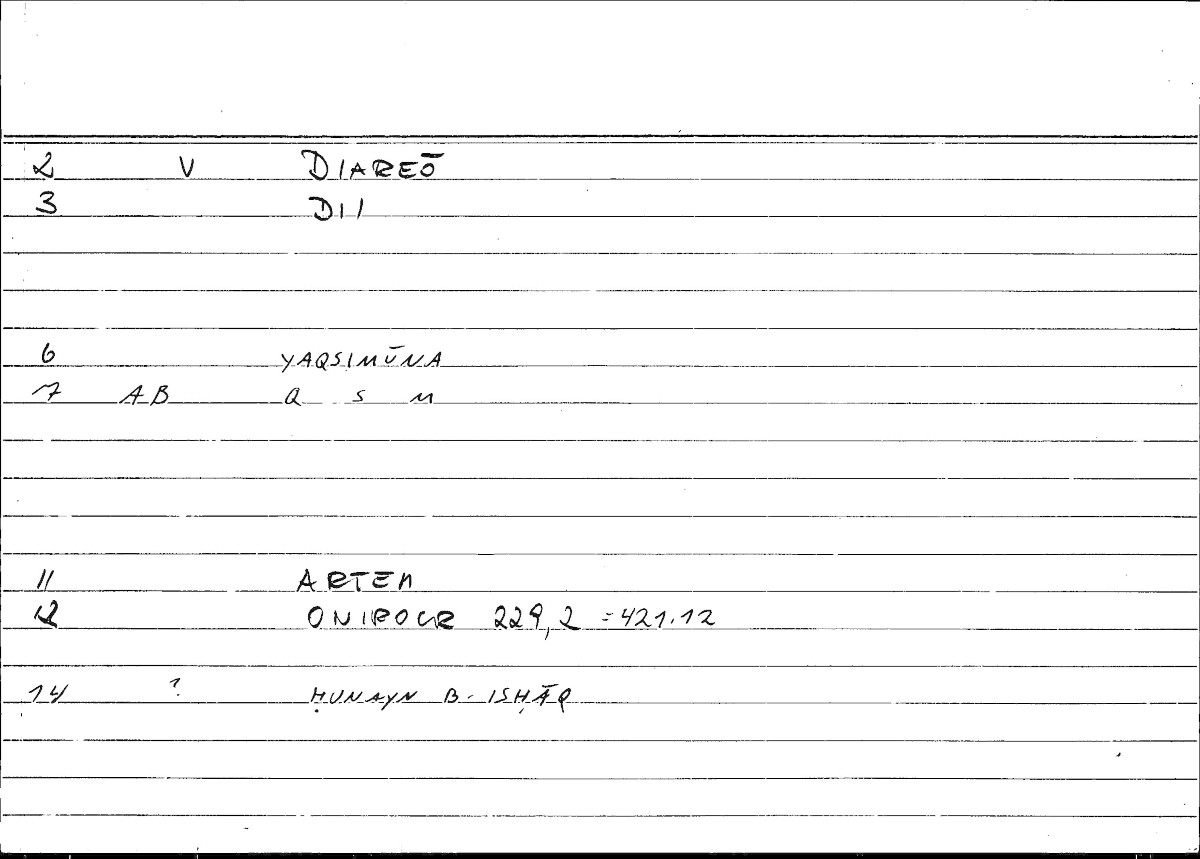 2 V DIAREŌ
3 DII
6 YAQSIMŪNA
7 AB Q S M
11 ARTEM
12 ONIROCR 229,2 =421.12
14 ? ḤUNAYN B. ISḤĀQ